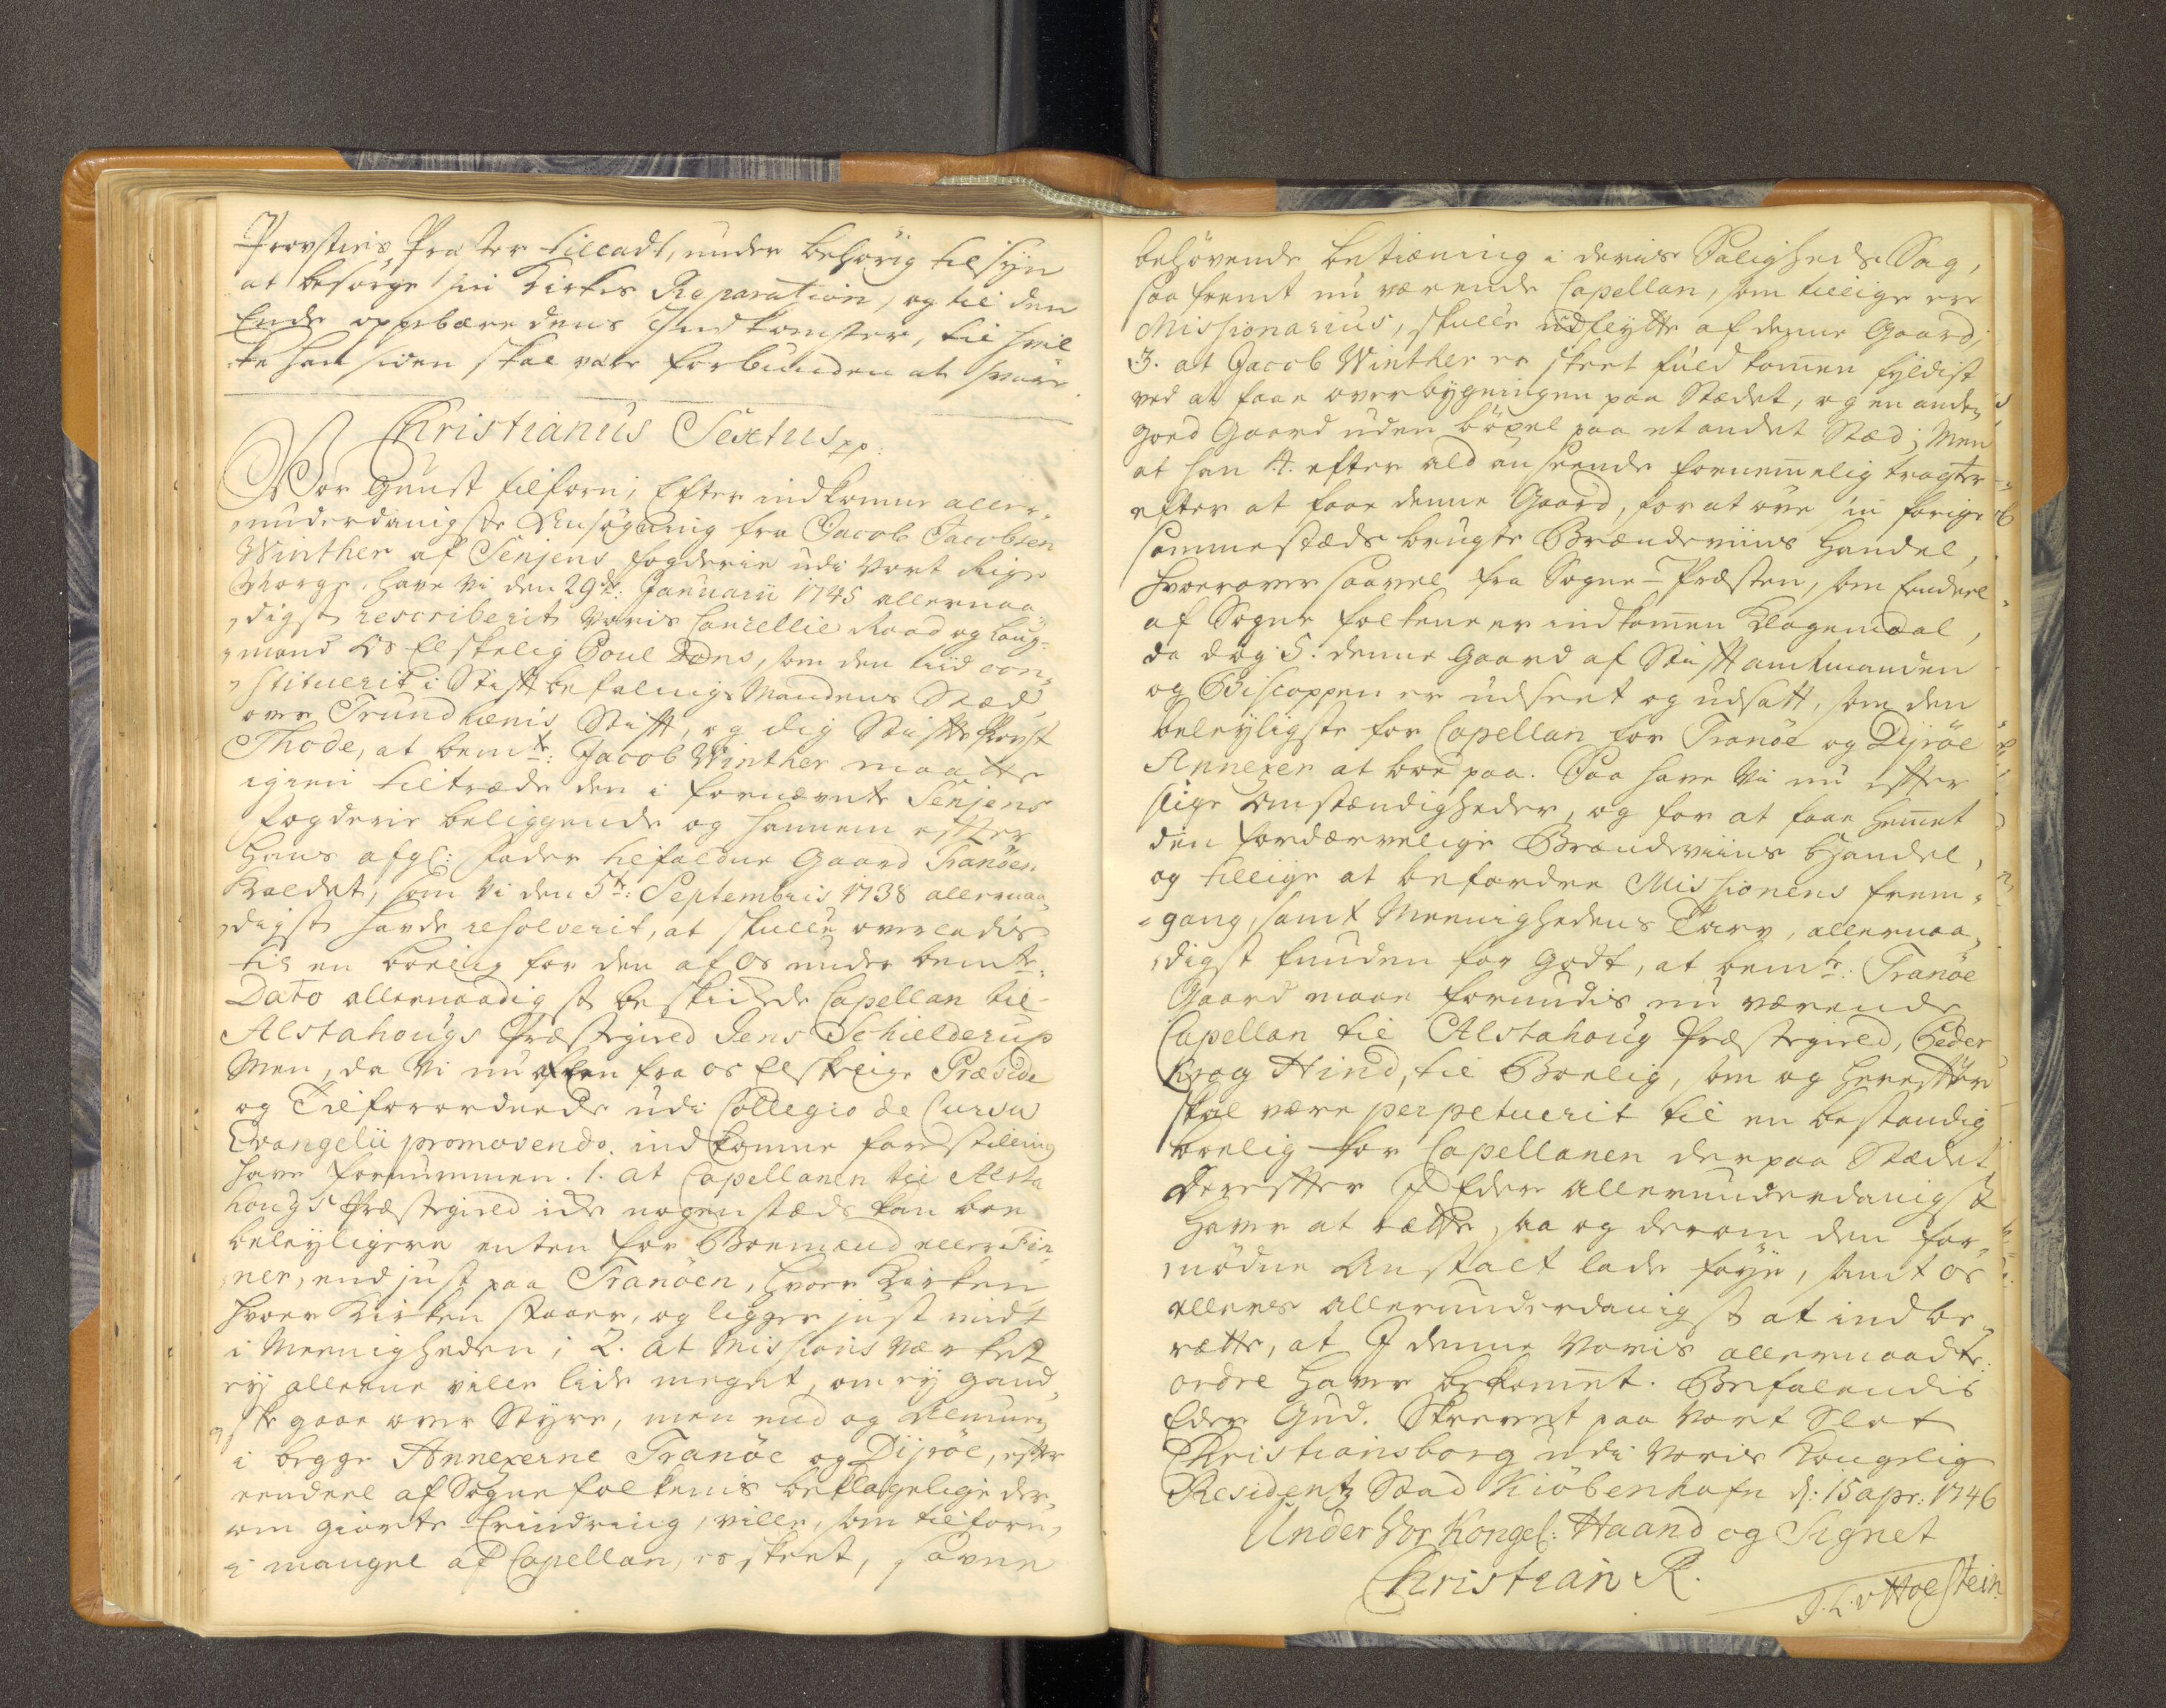 Provstens Præster tilladt, under behörig tilsÿn
at besörge sin Kirkes Reparation, og til den
Ende oppebære dens Indkomster, til hvil
-ke han siden skal være forbunden at svare
Christianus Sextus pp:
Vor Gunst tilforn; Efter indkomne aller-
underdanigste Ansögning fra Jacob Jacobsen
Winther af Senjens fogderie udi Vort Rige
Norge, have Vi den 29de: Januarii 1745 allernaa
digst rescriberit Voris Cancellie Raad og Laug-
mand Os Elskelig Poul Dons, som den tiid con-
stituerit i Stiftbefalnigs Mandens Stæd
over Trundhæms Stift, og dig Stifts Provst
Thode, at bemte: Jacob Winther maatte
igien tiltræde den i fornævnte Senjens
Fogderie beliggende og hannem efter
Hans afgl: fader tilfaldne Gaard Tranöen
Kaldet, som Vi den 5te: Septembris 1738 allernaa
digst havde resolverit, at skulle overladis
til en boelig for den af Os under bemte:
Dato allernaadigst beskikkede Capellan til
Alstahougs Præstegield Jens Schielderup
Men, da Vi nu af en fra os Elskelige Præside
og Tilforordnede udi Collegio de Cursu
Evangelii promovendo. indkomne forestilling
have fornummen. 1. at Capellanen til Alsta
hougs Præstegield icke nogenstæds kan boe
beleÿligere enten for Boemænd eller Fin
ner, end just paa Tranöen, hvor Kirken
hvor Kirken staaer, og ligger just midt
i Meenigheden; 2. at Missions Værket
eÿ alleene ville lide meget, om eÿ gand
ske gaae over Styre, men end og Almuen
i begge Annexerne Tranöe og Dÿröe, efter
eendeel af Sognefolkenis beklagelige der-
om giorte Erindring, ville, som tilforn,
i mangel af Capellan, er skeet, savne
behövende betiening i deris Saligheds Sag,
saa fremt nu værende Capellan, som tillige er
Missionarius, skulle udflÿtte af denne Gaard;
3. at Jacob Winther er skeet fuldkommen fyldist
ved at faae overbÿgningen paa Stædet, og en anden
goed Gaard uden böxel paa et andet Stæd; Men
at han 4. efter ald anseende fornemmelig tragter
efter at faae denne Gaard, for at öve sin forige
sammestæds brugte Brændeviins Handel,
hvorover saavel fra Sogne-Præsten, som Endeel
af Sogne folkene er indkommen Klagemaal,
da dog 5. denne Gaard af Stiftamtmanden
og Biscoppen er udseet og udsatt, som den
beleÿligste for Capellan for Tranöe og Dÿröe
Annexer at boe paa. Saa have Vi nu efter
slige Omstændigheder, og for at faae hemmet
den fordærvelige Brændeviins Handel,
og tillige at befordre Missionens frem-
gang, samt Meenighedens Tarv, allernaa
digst funden for godt, at bemte: Tranöe
Gaard maae forundis nu værende
Capellan til Alstahoug Præstegield, Peder
Krag Hind, til Boelig, som og herefter
skal være perpetuerit til en bestandig
boelig for Capellanen derpaa Stædet
Derefter I Eder allerunderdanigst
have at rette, saa og derom den for-
nödne Anstalt lade föÿe, samt os
ellers allerunderdanigst at indbe-
rette, at I denne Voris allernaadte:
ordre have bekommet. Befalendis
Eder Gud. Skrevet paa Vort Slot
Christiansborg udi Voris Kongelig
Residentz Stad Kiöbenhafn d: 15 apr: 1746
Under Vor Kongel: Haand og Signet
Christian R.
J. L. v Holstein